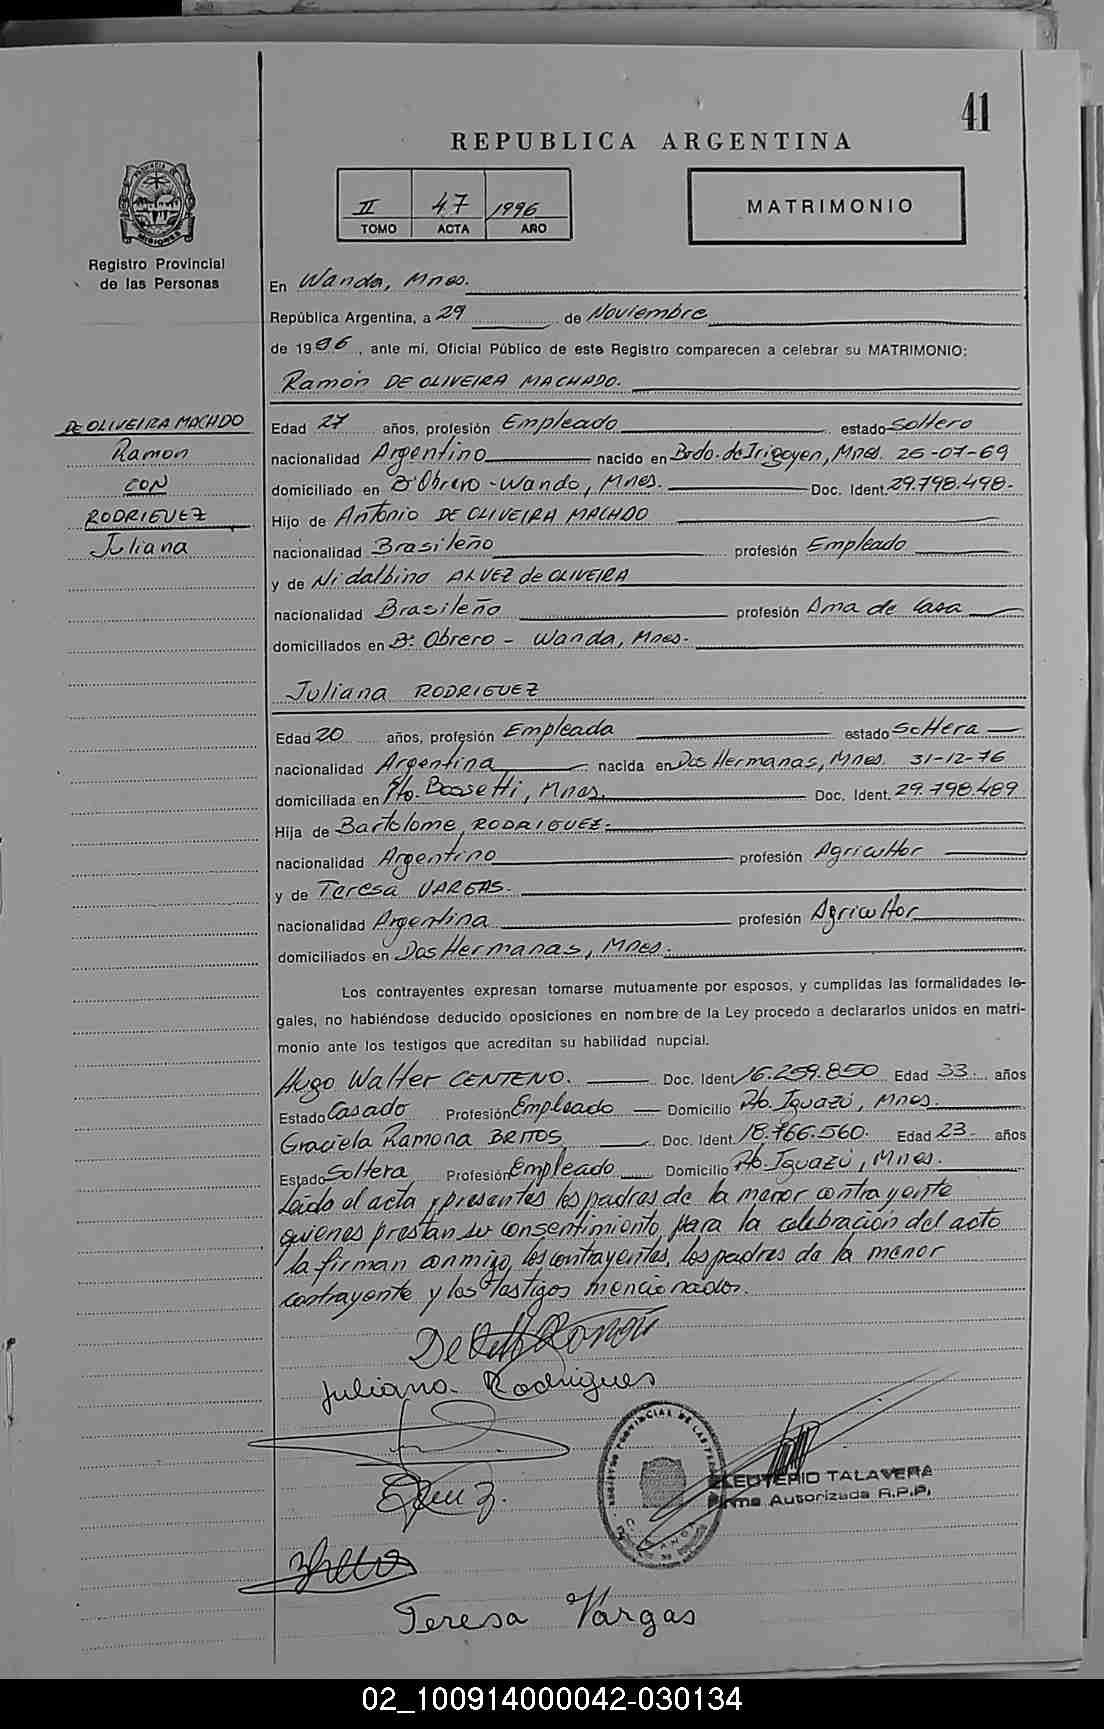 41
REPUBLICA ARGENTINA
II 47 1996
TOMO ACTA AÑO
MATRIMONIO
PROVINCIA DE MISIONES
Registro Provincial
de las Personas
DE OLIVEIRA MACHDO
Ramon
CON
RODRIGUEZ
Juliana
En Wanda, Mnes.
República Argentina, a 29 de Noviembre
de 1996, ante mí, Oficial Público de este Registro comparecen a celebrar su MATRIMONIO:
Ramón DE OLIVEIRA MACHADO.
Edad 27 años, profesión Empleado estado Soltero
nacionalidad Argentino nacido en Brdo. de Irigoyen, Mnes. 26-07-69
domiciliado en Bº Obrero - Wanda, Mnes. Doc. Ident. 29.798.498.
Hijo de Antonio DE OLIVEIRA MACHADO
nacionalidad Brasileño profesión Empleado
y de Nidalbino ALVEZ de OLIVEIRA
nacionalidad Brasileño profesión Ama de Casa
domiciliados en Bº Obrero - Wanda, Mnes.
Juliana RODRIGUEZ
Edad 20 años, profesión Empleada estado Soltera
nacionalidad Argentina nacida en Dos Hermanas, Mnes. 31-12-76
domiciliada en Pto. Bossetti, Mnes. Doc. Ident. 29.798.489
Hija de Bartolome RODRIGUEZ.
nacionalidad Argentino profesión Agricultor
y de Teresa VARGAS.
nacionalidad Argentina profesión Agricultor
domiciliados en Dos Hermanas, Mnes.
Los contrayentes expresan tomarse mutuamente por esposos, y cumplidas las formalidades le-
gales, no habiéndose deducido oposiciones en nombre de la Ley procedo a declararlos unidos en matri-
monio ante los testigos que acreditan su habilidad nupcial.
Hugo Walter CENTENO. Doc. Ident. 16.259.850 Edad 33 años
Estado Casado Profesión Empleado Domicilio Pto. Iguazú, Mnes.
Graciela Ramona BRITOS Doc. Ident. 18.766.560. Edad 23 años
Estado Soltera Profesión Empleado Domicilio Pto. Iguazú, Mnes.
Leida el acta y presentes los padres de la menor contrayente
quienes prestan su consentimiento, para la celebración del acto
la firman conmigo, los contrayentes, los padres de la menor
contrayente y los testigos mencionados.
Juliana Rodrigues
ELEUTERIO TALAVERA
Firma Autorizada R.P.P.
Teresa Vargas
02_100914000042-030134